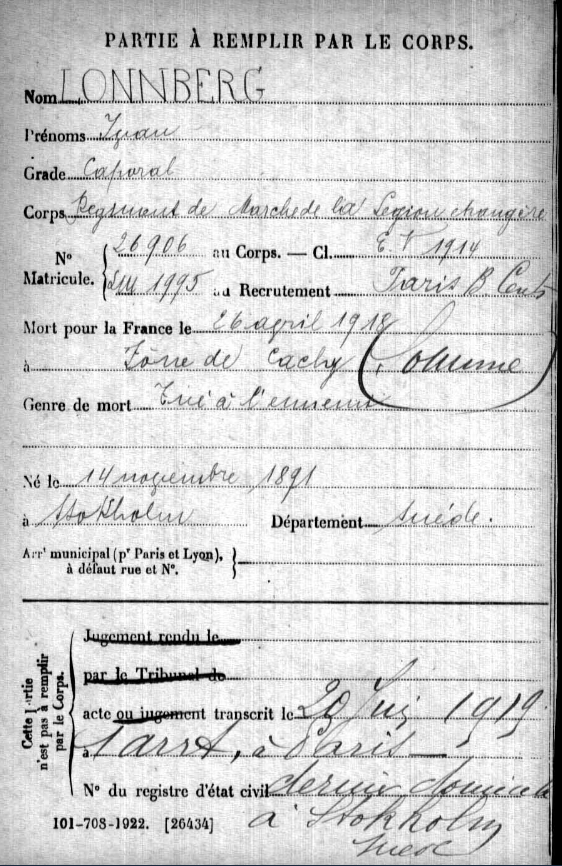 PARTIE À REMPLIR PAR LE CORPS.
Nom LONNBERG
Prénoms Ivan
Grade Caporal
Corps Régiment de Marche de la Légion étrangère
N° Matricule. 26906 au Corps. — Cl. E V 1914
1995 au Recrutement Paris B. Cent
Mort pour la France le 26 avril 1918
à Zone de Cachy (Somme)
Genre de mort Tué à l'ennemi
Né le 14 novembre 1891
à Stokholm Département Suéde.
Arr' municipal (p' Paris et Lyon),
à défaut rue et N°.
Cette partie n'est pas à remplir par le Corps.
Jugement rendu le
par le Tribunal de
acte ou jugement transcrit le 20 1919
à arrt, à Paris
N° du registre d'état civil dernier domicile
à Stokholm
101-708-1922. [26434] Suède